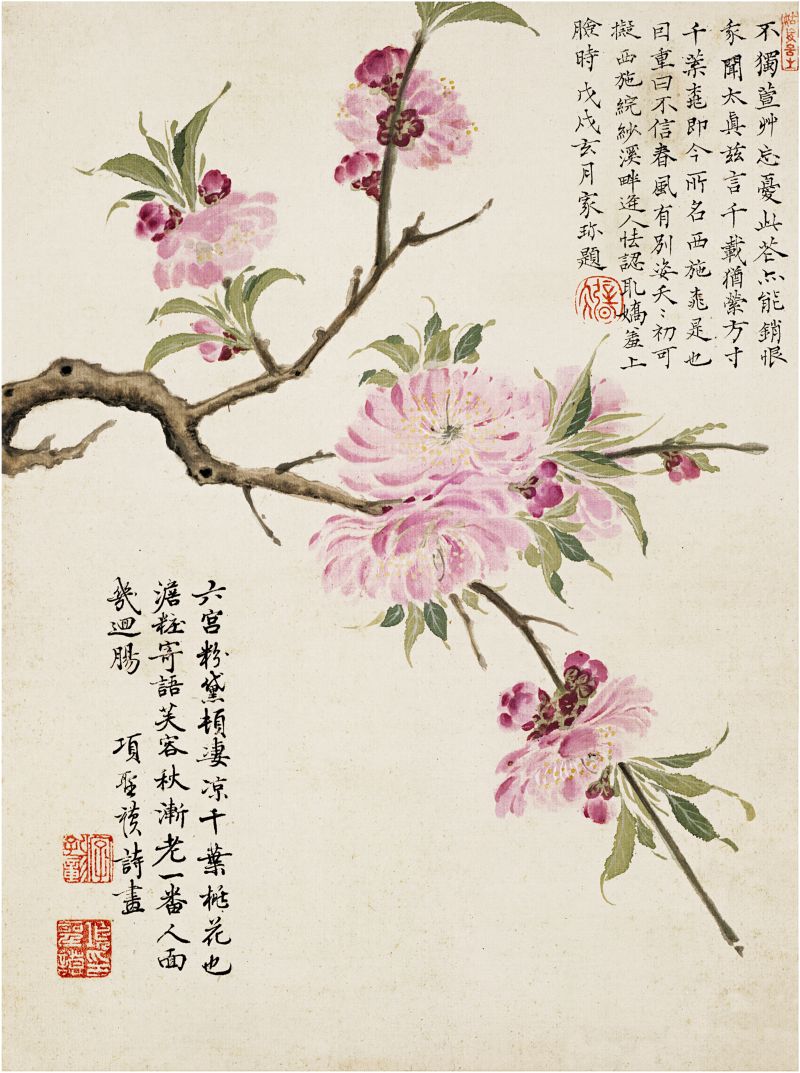 不獨萱艸忘憂此苍亦能銷恨
余聞太真玆言千載猶縈方寸
千葉桃即今所名西施桃是也
曰重曰不信春風有別姿夭〻初可
擬西施綄紗溪畔逢人怯認取嬌羞上
臉時 戊戍亥月家珎題
六宮粉黛頓凄凉千葉桃花也
澹粧寄語芙容秋漸老一番人面
幾迴腸 項聖謨詩畫